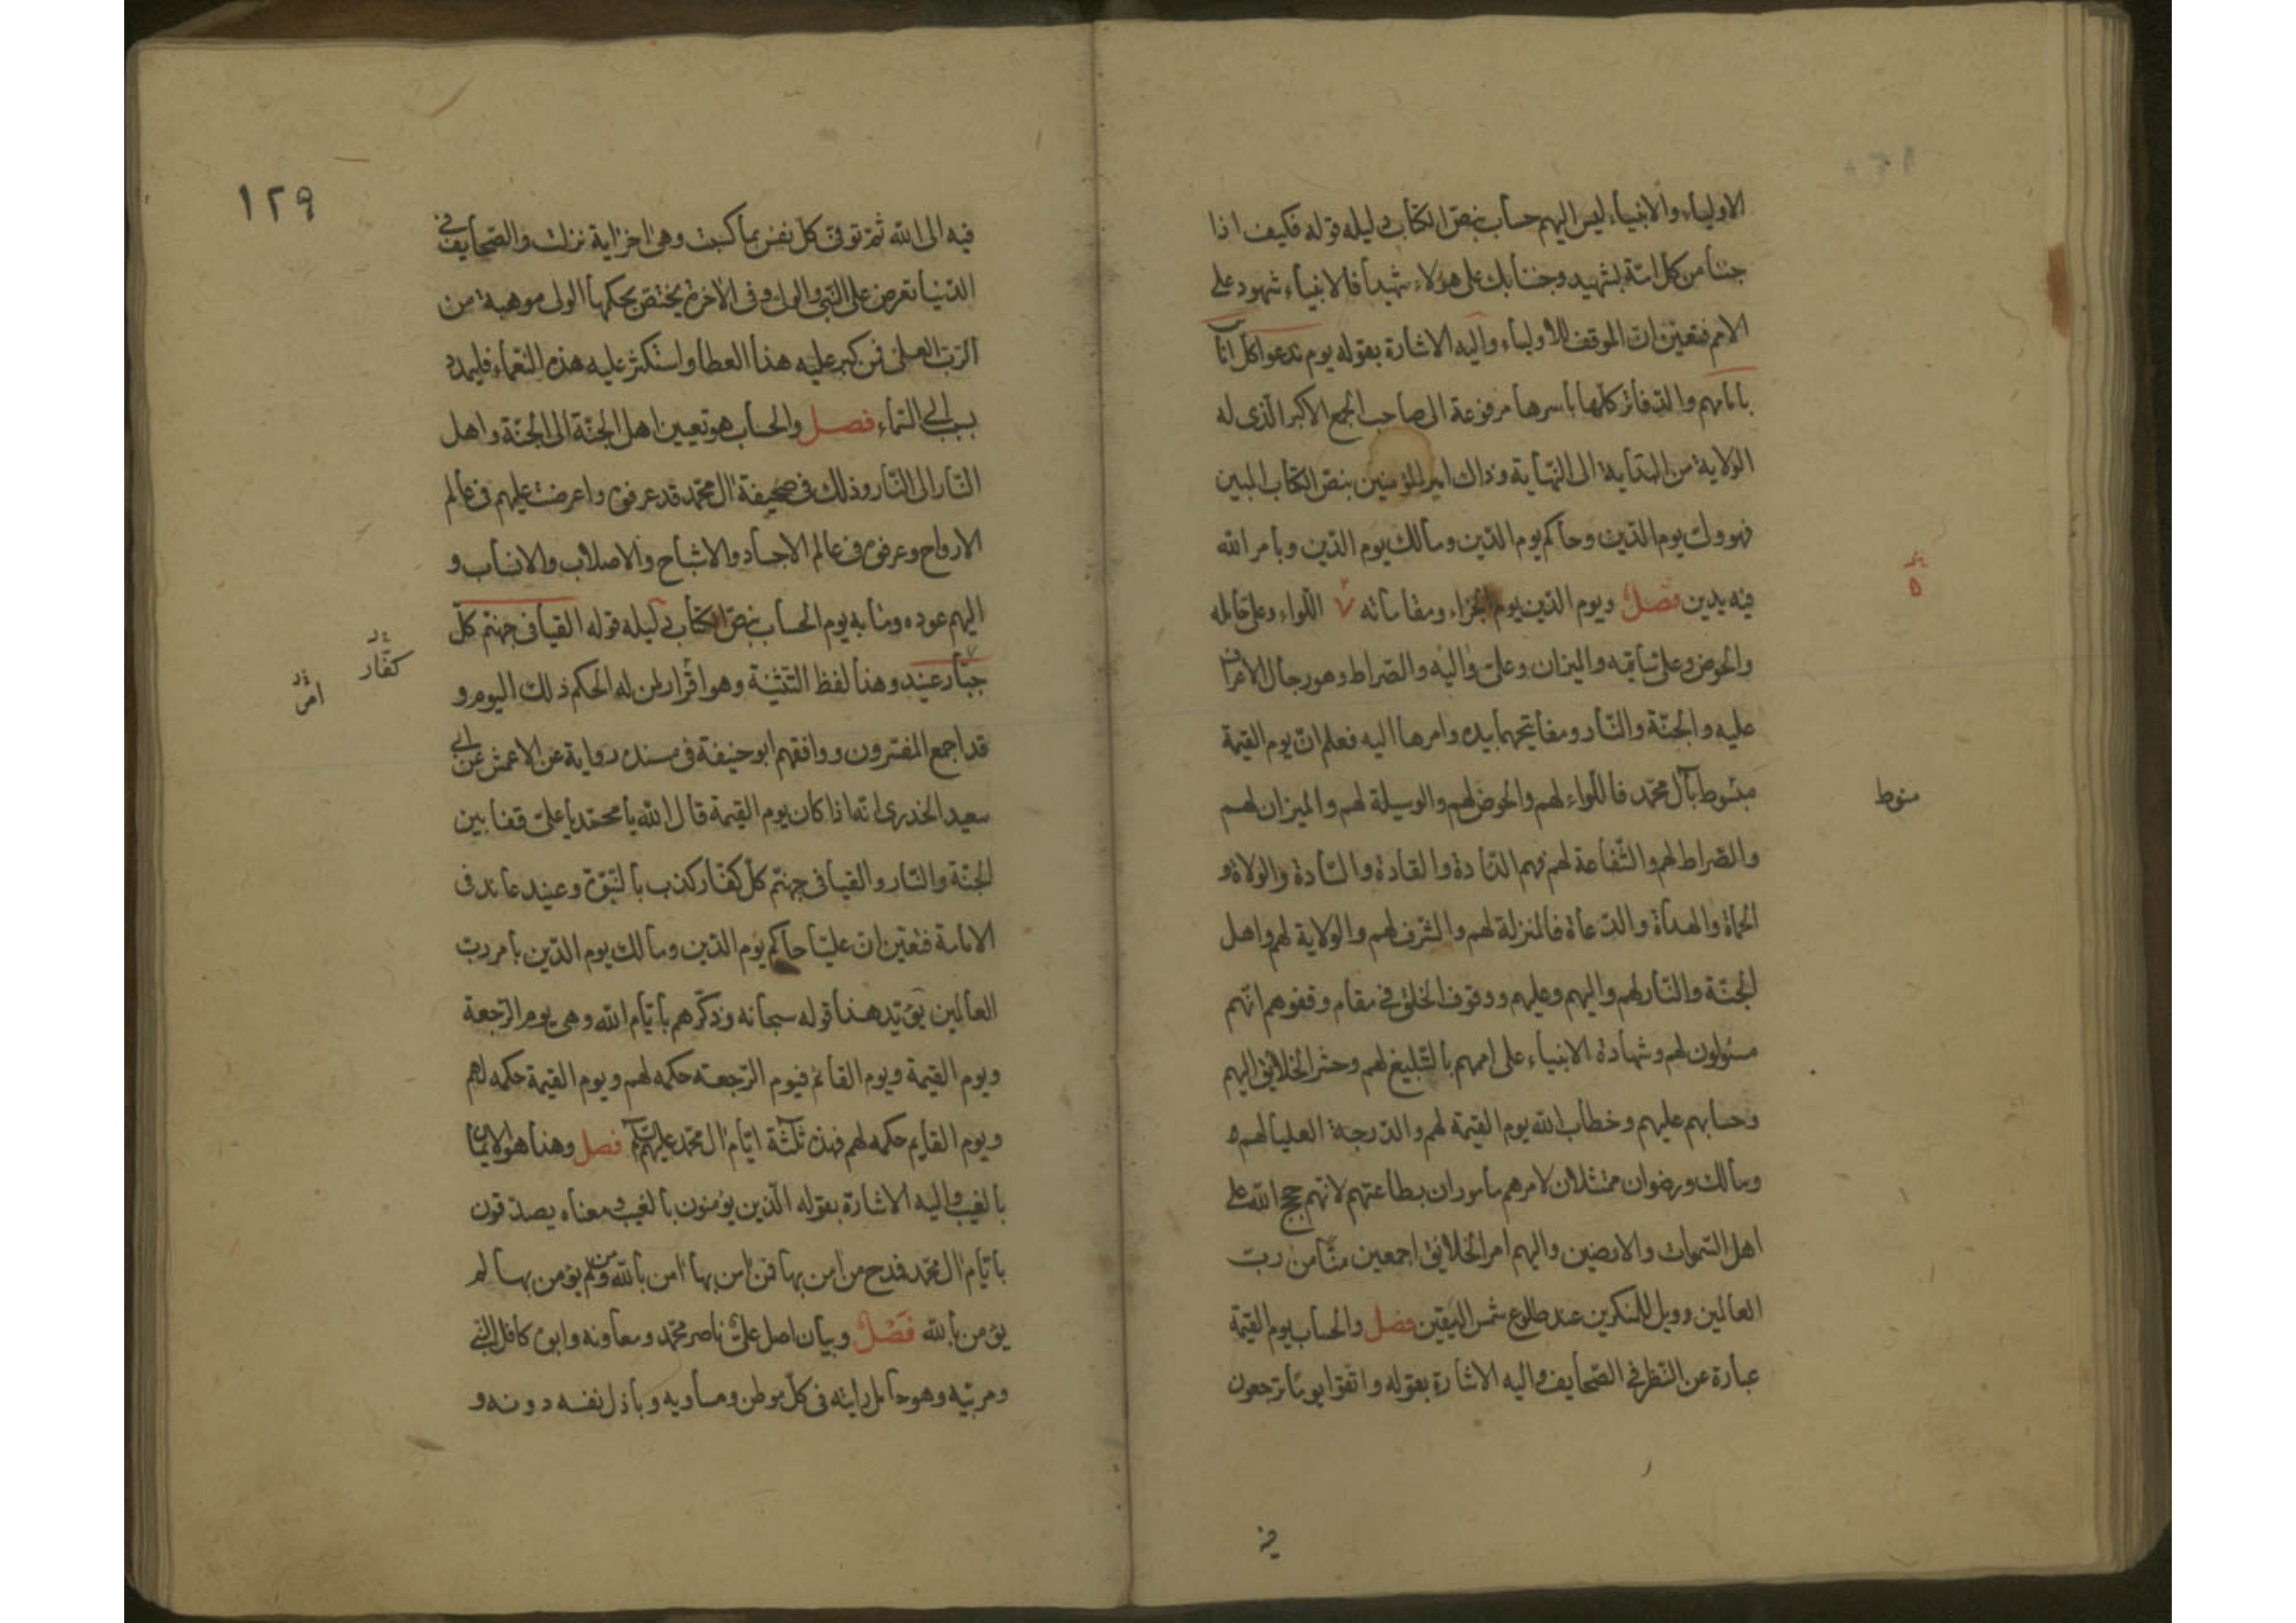 الاولياء والانبياء ليس اليهم حساب بنص الكتاب دليله قوله فكيف اذا
جئنا من كل امّة بشهيد وجئنا بك على هؤلاء شهيدا فالانبياء شهود على
الامم فتعين ان الموقف للاولياء واليه الاشارة بقوله يوم ندعوا كل اناس
بامامهم والدفاتر كلها باسرها مرفوعة الى صاحب الجمع الاكبر الّذى له
الولاية من البداية الى النهاية وذاك امير المؤمنين بنص الكتاب المبين
فهو ولى يوم الدّين وحاكم يوم الدّين ومالك يوم الدّين وبامر الله
فيه يدين فصل ويوم الدّين يوم الجزاء ومقاماته ٧ اللّواء وعلى حامله
والحوض وعلى ساقيه والميزان وعلى واليه والصراط وهو رجال الاعراف
عليه والجنّة والنّار ومفاتيحهما بيده وامرها اليه فعلم ان يوم القيمة
مبسوط بآل محمّد فاللّواء لهم والحوض لهم والوسيلة لهم والميزان لهم
والصراط لهم والشّفاعة لهم فهم الذادة والقادة والسّادة والولاة و
الحماة والهداة والدعاة فالمنزلة لهم والشرف لهم والولاية لهم واهل
الجنّة والنّار لهم واليهم وعليهم ووقوف الخلق فى مقام وقفوهم انّهم
مسئولون لهم وشهادة الانبياء على اممهم بالتّبليغ لهم وحشر الخلائق اليهم
وحسابهم عليهم وخطاب الله يوم القيمة لهم والدرجة العليا لهم
ومالك ورضوان ممتثلان لامرهم ماموران بطاعتهم لانّهم حجج الله على
اهل السّموات والارضين واليهم امر الخلائق اجمعين منّا من ربّ
العالمين وويل للمنكرين عند طلوع شمس اليقين فصل والحساب يوم القيمة
عبارة عن النّظر فى الصّحايف واليه الاشارة بقوله واتّقوا يوما ترجعون
٥
منوط
فيه
١٢٩
فيه الى الله ثمّ توفّى كلّ نفس بما كسبت وهى اخر اية نزلت والصّحايف فى
الدّنيا تعرض على النّبى والولى وفى الاخرة يختصّ بحكمها الولى موهبة من
الربّ العلى فمن كبر عليه هذا العطا واستكثر عليه هذه النّعماء فليمدد
بسبب الى السّماء فصل والحساب هو تعيين اهل الجنّة الى الجنّة واهل
النّار الى النّار وذلك فى صحيفة ال محمّد قد عرفوه واعرضت عليهم فى عالم
الارواح وعرفوه فى عالم الاجساد والاشباح والاصلاب والانساب و
اليهم عوده ومابه يوم الحساب بنص الكتاب دليله قوله القيا فى جهنّم كلّ
جبّار عنيد وهذا لفظ التثنية وهو اقرار لمن له الحكم ذلك اليوم و
قد اجمع المفسّرون ووافقهم ابو حنيفة فى مسنده رواية عن الاعمش عن ابى
سعيد الخدرى انّه اذا كان يوم القيمة قال الله يا محمّد يا علىّ قفا بين
الجنّة والنّار والقيا فى جهنّم كلّ كفّار كذب بالنّبوّة وعنيد عاند فى
الامامة فتعيّن ان عليّا حاكم يوم الدّين ومالك يوم الدّين بامر ربّ
العالمين يؤيّد هذا قوله سبحانه وذكّرهم بايّام الله وهى يوم الرّجعة
ويوم القيمة ويوم القائم فيوم الرّجعته حكمه لهم ويوم القيمة حكمه لهم
ويوم القايم حكمه لهم فهذه ثلثة ايّام ال محمّد عليهم السّلم فصل وهذا هو الايمان
بالغيب واليه الاشارة بقوله الّذين يؤمنون بالغيب ومعناه يصدّقون
بايّام ال محمّد فمدح من امن بها فمن امن بها امن بالله ومن لم يؤمن بها لم
يؤمن بالله فصل وبيان اصل علىّ ناصر محمّد ومعاونه وابوه كافل النّبى
ومربّيه وهو حامل رايته فى كلّ موطن ومساويه وباذل نفسه دونه و
كفّار